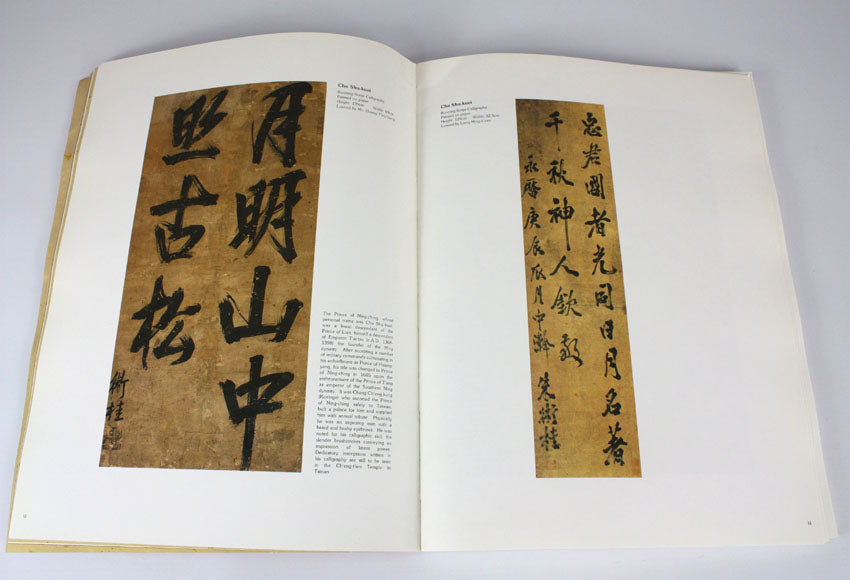 月明山中
照古松
術桂
Chu Shu-kuei
Running Script Calligraphy
Painted on paper
The Prince of Ning-ching, whose
personal name was Chu Shu-kuei,
was a lineal descendant of the
Prince of Liao, himself a descendant
of Emperor T'ai-tsu in A.D. 1368-
1398) the founder of the Ming
dynasty. After accepting a number
of military commands culminating in
his enfeoffment as Prince of
his title was changed to Prince
of Ning-ching in 1645 upon the
enthronement of the Prince of T'ang
as emperor of the Southern Ming
dynasty. It was Cheng Ch'eng-kung
(Koxinga) who escorted the Prince
of Ning-ching safely to Taiwan,
built a palace for him and supplied
him with annual tribute. Physically
he was an imposing man with a
beard and bushy eyebrows. He was
noted for his calligraphic skill, his
slender brushstrokes conveying an
impression of latent power.
Dedicatory inscriptions written in
his calligraphy are still to be seen
in the Temple in
Tainan
12
Chu Shu-kuei
Running Script Calligraphy
Painted on paper
忠君國者光同日月名著
千秋神人欽敬
永曆庚辰瓜月中澣 朱術桂
13